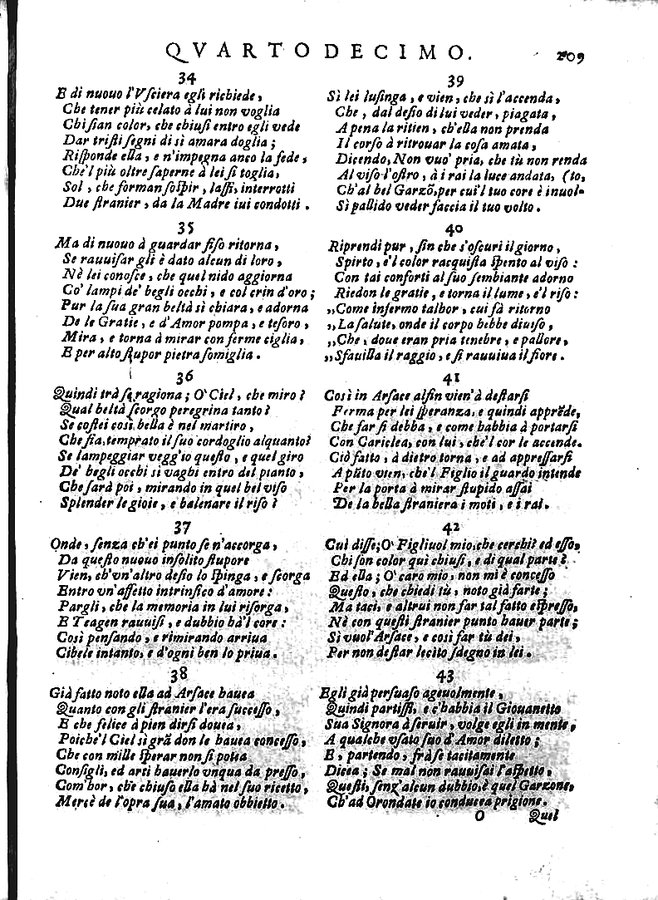 QVARTODECIMO. 209
34
E di nuouo l'Vsciera egli richiede,
Che tener più celato à lui non voglia
Chi sian color, che chiusi entro egli vede
Dar tristi segni di sì amara doglia;
Risponde ella, e n'impegna anco la fede,
Che'l più oltre saperne à lei si toglia,
Sol, che forman sospir, lassi, interrotti
Due stranier, da la Madre iui condotti.
35
Ma di nuouo à guardar fiso ritorna,
Se rauuisar gli è dato alcun di loro,
Nè lei conosce, che quel nido aggiorna
Co' lampi de' begli occhi, e col crin d'oro;
Pur la sua gran beltà sì chiara, e adorna
De le Gratie, e d'Amor pompa, e tesoro,
Mira, e torna à mirar con ferme ciglia,
E per alto stupor pietra somiglia.
36
Quindi trà se ragiona; O' Ciel, che miro?
Qual beltà scorgo peregrina tanto?
Se costei così bella è nel martiro,
Che fia, temprato il suo cordoglio alquanto?
Se lampeggiar vegg'io questo, e quel giro
De' begli occhi sì vaghi entro del pianto,
Che sarà poi, mirando in quel bel viso
Splender le gioie, e balenare il riso?
37
Onde, senza ch'ei punto se n'accorga,
Da questo nuouo insolito stupore
Vien, ch'vn'altro desio lo spinga, e scorga
Entro vn'affetto intrinsico d'amore:
Pargli, che la memoria in lui risorga,
E Teagen rauuisi, e dubbio hà'l core:
Così pensando, e rimirando arriua
Cibele intanto, e d'ogni ben lo priua.
38
Già fatto noto ella ad Arsace hauea
Quanto con gli stranier l'era successo,
E che felice à pien dirsi douea,
Poiche'l Ciel sì grã don le hauea concesso,
Che con mille sperar non si potea
Consigli, ed arti hauerlo vnqua da presso,
Com'hor, che chiuso ella hà nel suo ricetto,
Mercè de l'opra sua, l'amato obbietto.
39
Sì lei lusinga, e vien, che sì l'accenda,
Che, dal desio di lui veder, piagata,
A pena la ritien, ch'ella non prenda
Il corso à ritrouar la cosa amata,
Dicendo, Non vuo' pria, che tù non renda
Al viso l'ostro, à i rai la luce andata, (to,
Ch'al bel Garzõ, per cui'l tuo core è inuol-
Sì pallido veder faccia il tuo volto.
40
Riprendi pur, fin che s'oscuri il giorno,
Spirto, e'l color racquista spento al viso:
Con tai conforti al suo sembiante adorno
Riedon le gratie, e torna il lume, e'l riso:
„Come infermo talhor, cui fà ritorno
„La salute, onde il corpo hebbe diuiso,
„Che, doue eran pria tenebre, e pallore,
„Sfauilla il raggio, e si rauuiua il fiore.
41
Così in Arsace alfin vien'à destarsi
Ferma per lei speranza, e quindi apprẽde,
Che far si debba, e come habbia à portarsi
Con Cariclea, con lui, che'l cor le accende.
Ciò fatto, à dietro torna, e ad appressarsi
A pũto vien, che'l Figlio il guardo intende
Per la porta à mirar stupido assai
De la bella straniera i moti, e i rai.
42
Cui disse; O' Figliuol mio, che cerchi? ed esso,
Chi son color qui chiusi, e di qual parte?
Ed ella; O' caro mio, non mi è concesso
Questo, che chiedi tù, noto già farte;
Ma taci, e altrui non far tal fatto espresso,
Nè con questi stranier punto hauer parte;
Sì vuol'Arsace, e così far tù dei,
Per non destar lecito sdegno in lei.
43
Egli già persuaso ageuolmente,
Quindi partissi, e c'habbia il Giouanetto
Sua Signora à seruir, volge egli in mente,
A qualche vsato suo d'Amor diletto;
E, partendo, frà se tacitamente
Dicea; Se mal non rauuisai l'aspetto,
Questi, senz'alcun dubbio, è quel Garzone,
Ch'ad Orondate io conducea prigione.
O Quel